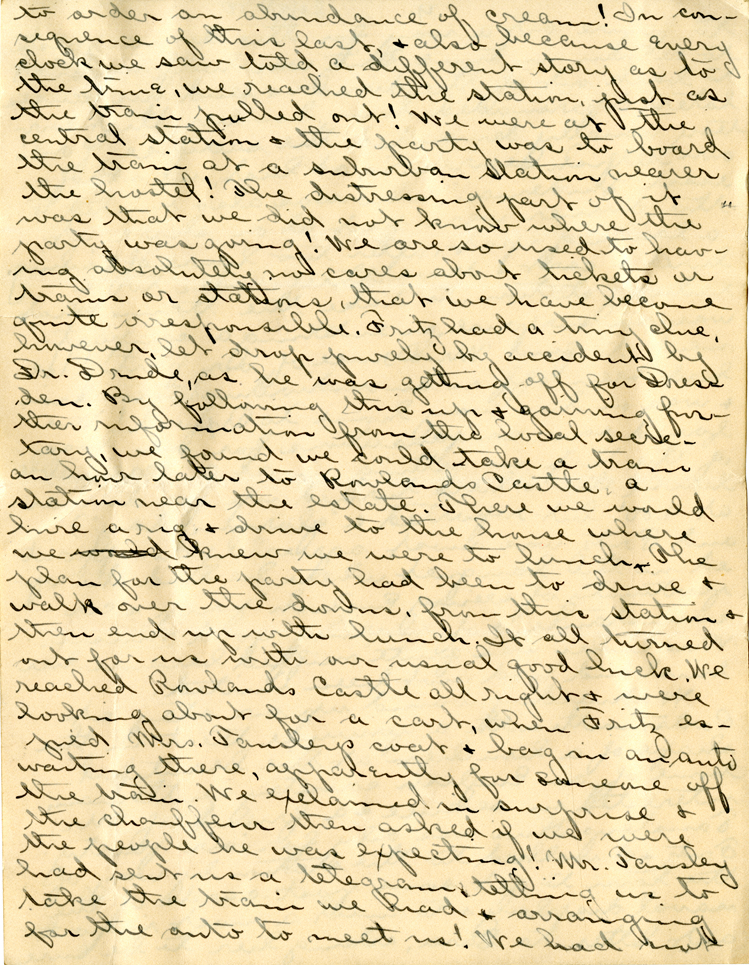 to order an abundance of cream! In con-
sequence of this last, & also because every
clock we saw told a different story as to
the time, we reached the station, just as
the train pulled out! We were at the
central station & the party was to board
the train at a suburban station nearer
the hostel! The distressing part of it
was that we did not know where the
party was going! We are so used to hav-
ing absolutely no cares about tickets or
trains or stations, that we have become
quite irresponsible. Fritz had a tiny clue,
however, let drop purely by accident by
Dr. Drude, as he was getting off for Dres-
den. By following this up & gaining fur-
ther information from the local secre-
tary, we found we could take a train
an hour later to Rowlands Castle, a
station near the estate. There we would
hire a rig & drive to the house where
we would knew we were to lunch. The
plan for the party had been to drive &
walk over the downs, from this station &
then end up with lunch. It all turned
out for us with our usual good luck. We
reached Rowlands Castle all right & were
looking about for a cart, when Fritz es-
pied Mrs. Tansley's coat & bag in an auto
waiting there, apparently for someone off
the train. We exclaimed in surprise &
the chauffeur then asked if we were
the people he was expecting! Mr. Tansley
had sent us a telegram, telling us to
take the train we had & arranging
for the auto to meet us! We had not